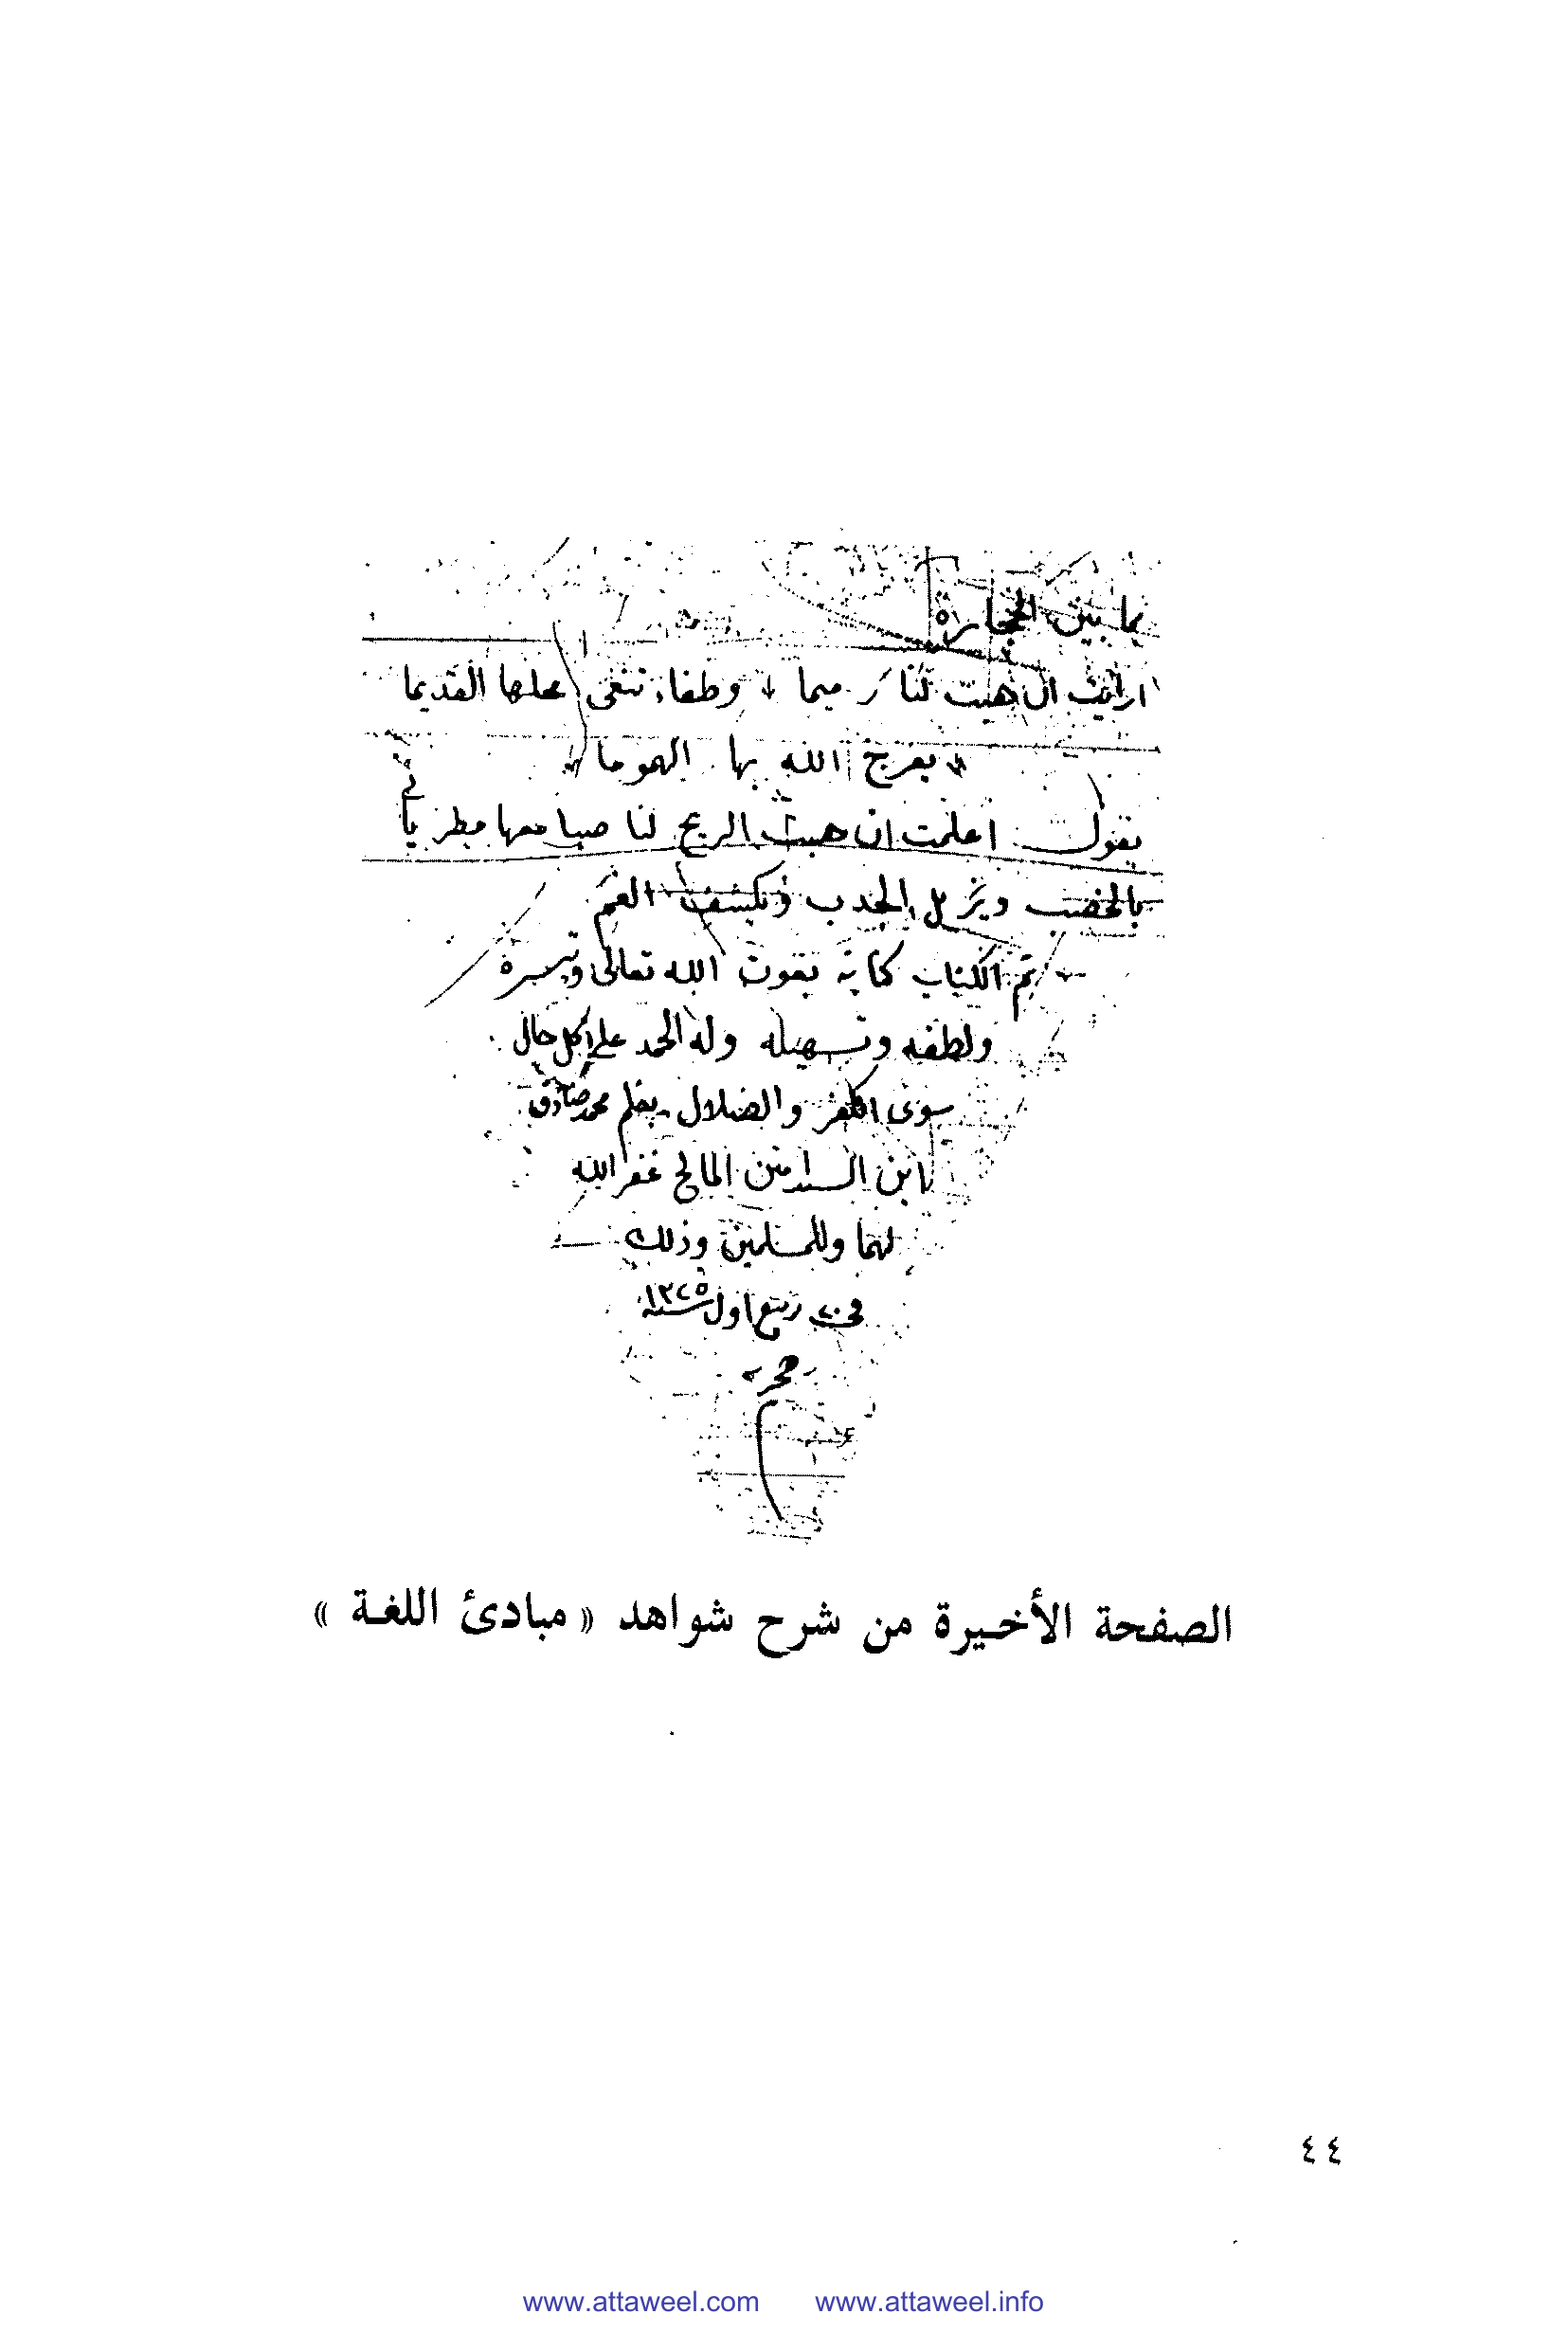 بما بين الحجارة
ارايت ان هبت لنا وطفاء تنفى محلها القديما
يفرج الله بها الهموما
يقول اعلمت ان هبت الريح لنا صبا معها مطر ياتى
بالخصب ويزيل الجدب وتكشف الغم
تم الكتاب كتابة بقوت الله تعالى وتيسيره
ولطفه وتسهيله وله الحمد على كل حال
سوى الكفر والضلال بقلم محمد صادق
ابن السيد امين المالح غفر الله
لهما وللمسلمين وذلك
فى ٢٠ ربيع اول سنة ١٣٢٥
الصفحة الأخيرة من شرح شواهد « مبادئ اللغة »
٤٤
www.attaweel.com www.attaweel.info